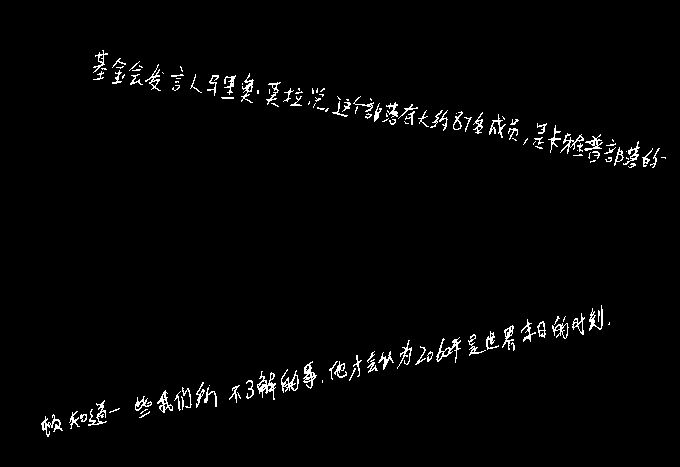 基金会发言人马里奥·莫拉说,这个部落有大约87名成员,是卡雅普部落的一
顿知道一些我们所不了解的事,他才会认为2060年是世界末日的时刻.